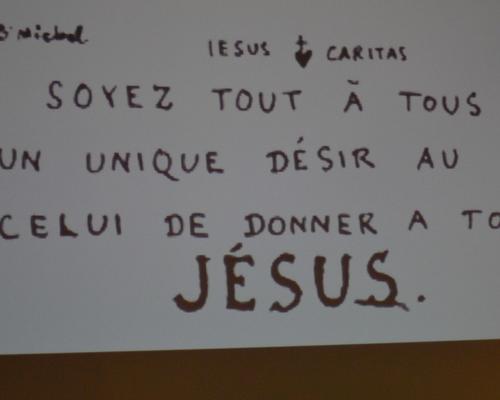 IESUS CARITAS
SOYEZ TOUT À TOUS
UN UNIQUE DÉSIR AU
CELUI DE DONNER A TO
JÉSUS.